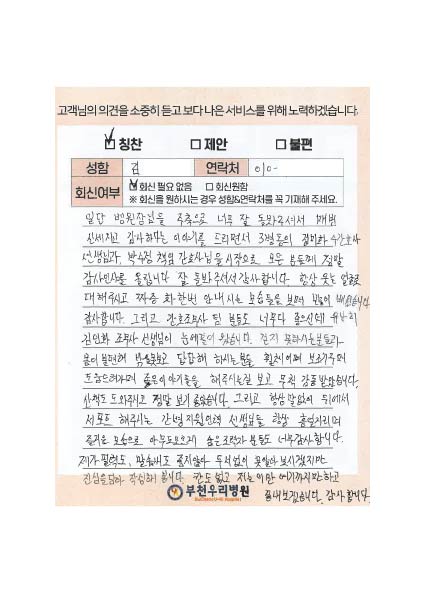 고객님의 의견을 소중히 듣고 보다 나은 서비스를 위해 노력하겠습니다.
칭찬 제안 불편
성함 김 연락처 010-
회신여부 회신 필요 없음 회신원함
※ 회신을 원하시는 경우 성함&연락처를 꼭 기재해 주세요.
일단 병원장님을 주축으로 너무 잘 돌봐주셔서 매번
신세지고 감사하다는 이야기를 드리면서 3병동의 수간호사
선생님과 책임 간호사님을 시작으로 모든 분들께 정말
감사인사를 올립니다 잘 돌봐주셔서 감사합니다. 항상 웃는 얼굴로
대해주시고 짜증 한번 안내시는 모습들을 보며 많이 배웠습니다
감사합니다. 그리고 간호조무사 팀 분들도 너무 좋으신데 유난히
조무사 선생님이 눈에 왔습니다. 분들과
몸이 불편해 답답해 하시는 분들 휠체어에
좋은 이야기들을 해주시는걸 보고 무척 감동받았습니다.
산책도 도와주시고 정말 보기 좋았습니다. 그리고 항상 말없이 뒤에서
서포트 해주시는 간병지원인력 선생님들 항상
모습으로 숨은 조력자 분들도 너무 감사합니다.
제가 필력도, 말솜씨도 좋지않아 두서없이
진심을 담아 작성해 봅니다. 저는 이만 여기까지만 하고
감사합니다.
부천우리병원